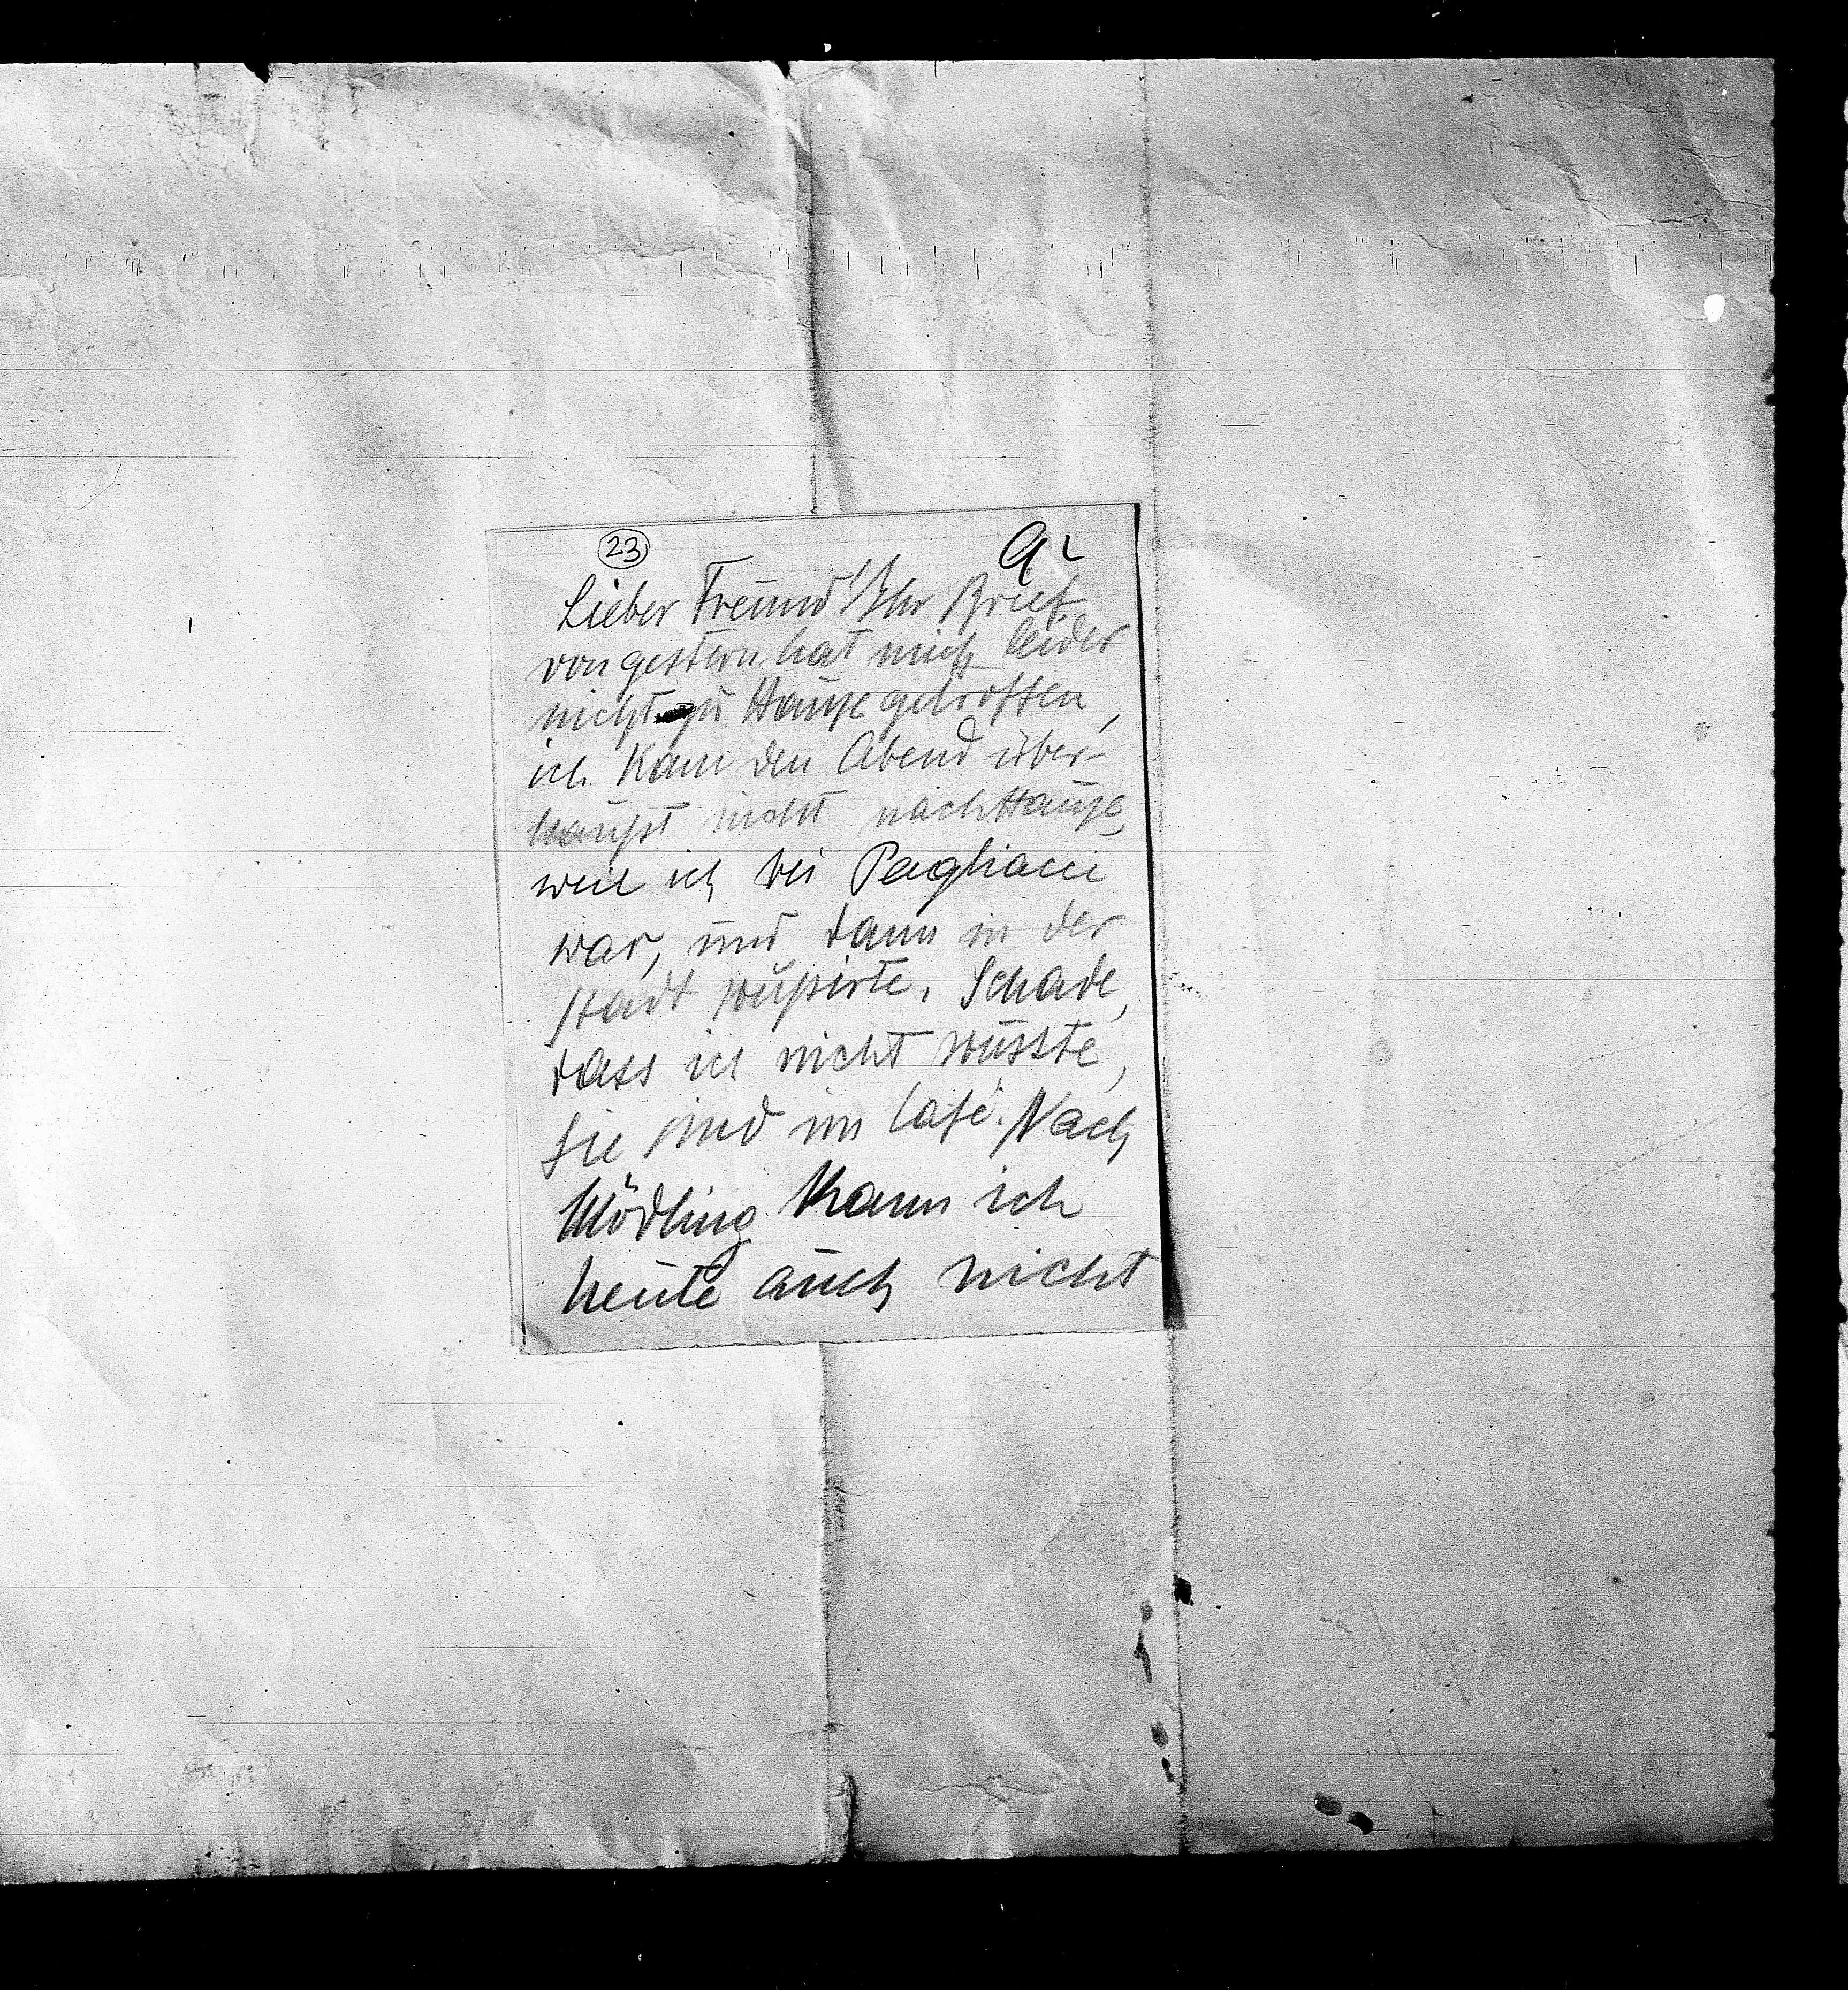 23
Lieber Freund! Ihr Brief
von gestern hat mich leider
nicht zu Hause getroffen,
ich kam den Abend über-
haupt nicht nach Hause,
weil ich bei Pagliacci
war, und dann in der
Stadt soupirte. Schade,
dass ich nicht wusste,
Sie sind im Café. Nach
Mödling kann ich
heute auch nicht